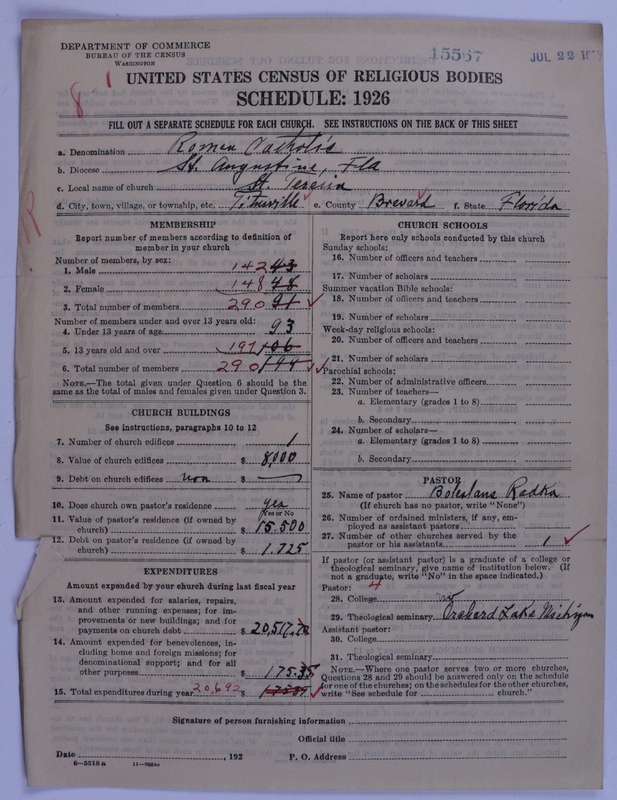 DEPARTMENT OF COMMERCE
BUREAU OF THE CENSUS
WASHINGTON
15567
JUL 22
8 1
UNITED STATES CENSUS OF RELIGIOUS BODIES
SCHEDULE: 1926
FILL OUT A SEPARATE SCHEDULE FOR EACH CHURCH. SEE INSTRUCTIONS ON THE BACK OF THIS SHEET
a. Denomination Roman Catholic
b. Diocese St. Augustine, Fla
c. Local name of church St. Teresa
d. City, town, village, or township, etc. Titusville e. County Brevard f. State Florida
MEMBERSHIP
Report number of members according to definition of
member in your church
Number of members, by sex:
1. Male 142 43
2. Female 148 48
3. Total number of members 290 91
Number of members under and over 13 years old:
4. Under 13 years of age 93
5. 13 years old and over 197 106
6. Total number of members 290 199
NOTE.—The total given under Question 6 should be the
same as the total of males and females given under Question 3.
CHURCH BUILDINGS
See instructions, paragraphs 10 to 12
7. Number of church edifices 1
8. Value of church edifices $ 8,000
9. Debt on church edifices non $
10. Does church own pastor's residence yes
(Yes or No)
11. Value of pastor's residence (if owned by
church) $ 15.500
12. Debt on pastor's residence (if owned by
church) $ 1.725
EXPENDITURES
Amount expended by your church during last fiscal year
13. Amount expended for salaries, repairs,
and other running expenses; for im-
provements or new buildings; and for
payments on church debt $ 20,517.70
14. Amount expended for benevolences, in-
cluding home and foreign missions; for
denominational support; and for all
other purposes $ 175.35
15. Total expenditures during year 20,692 $
CHURCH SCHOOLS
Report here only schools conducted by this church
Sunday schools:
16. Number of officers and teachers
17. Number of scholars
Summer vacation Bible schools:
18. Number of officers and teachers
19. Number of scholars
Week-day religious schools:
20. Number of officers and teachers
21. Number of scholars
Parochial schools:
22. Number of administrative officers
23. Number of teachers—
a. Elementary (grades 1 to 8)
b. Secondary
24. Number of scholars—
a. Elementary (grades 1 to 8)
b. Secondary
PASTOR
25. Name of pastor Boleslaus Radka
(If church has no pastor, write "None")
26. Number of ordained ministers, if any, em-
ployed as assistant pastors
27. Number of other churches served by the
pastor or his assistants 1
If pastor (or assistant pastor) is a graduate of a college or
theological seminary, give name of institution below. (If
not a graduate, write "No" in the space indicated.)
Pastor: 4
28. College
29. Theological seminary Orchard Lake Michigan
Assistant pastor:
30. College
31. Theological seminary
NOTE.—Where one pastor serves two or more churches,
Questions 28 and 29 should be answered only on the schedule
for one of the churches; on the schedules for the other churches,
write "See schedule for church."
Signature of person furnishing information
Official title
Date , 192 P. O. Address
6—5518a 11—9554a